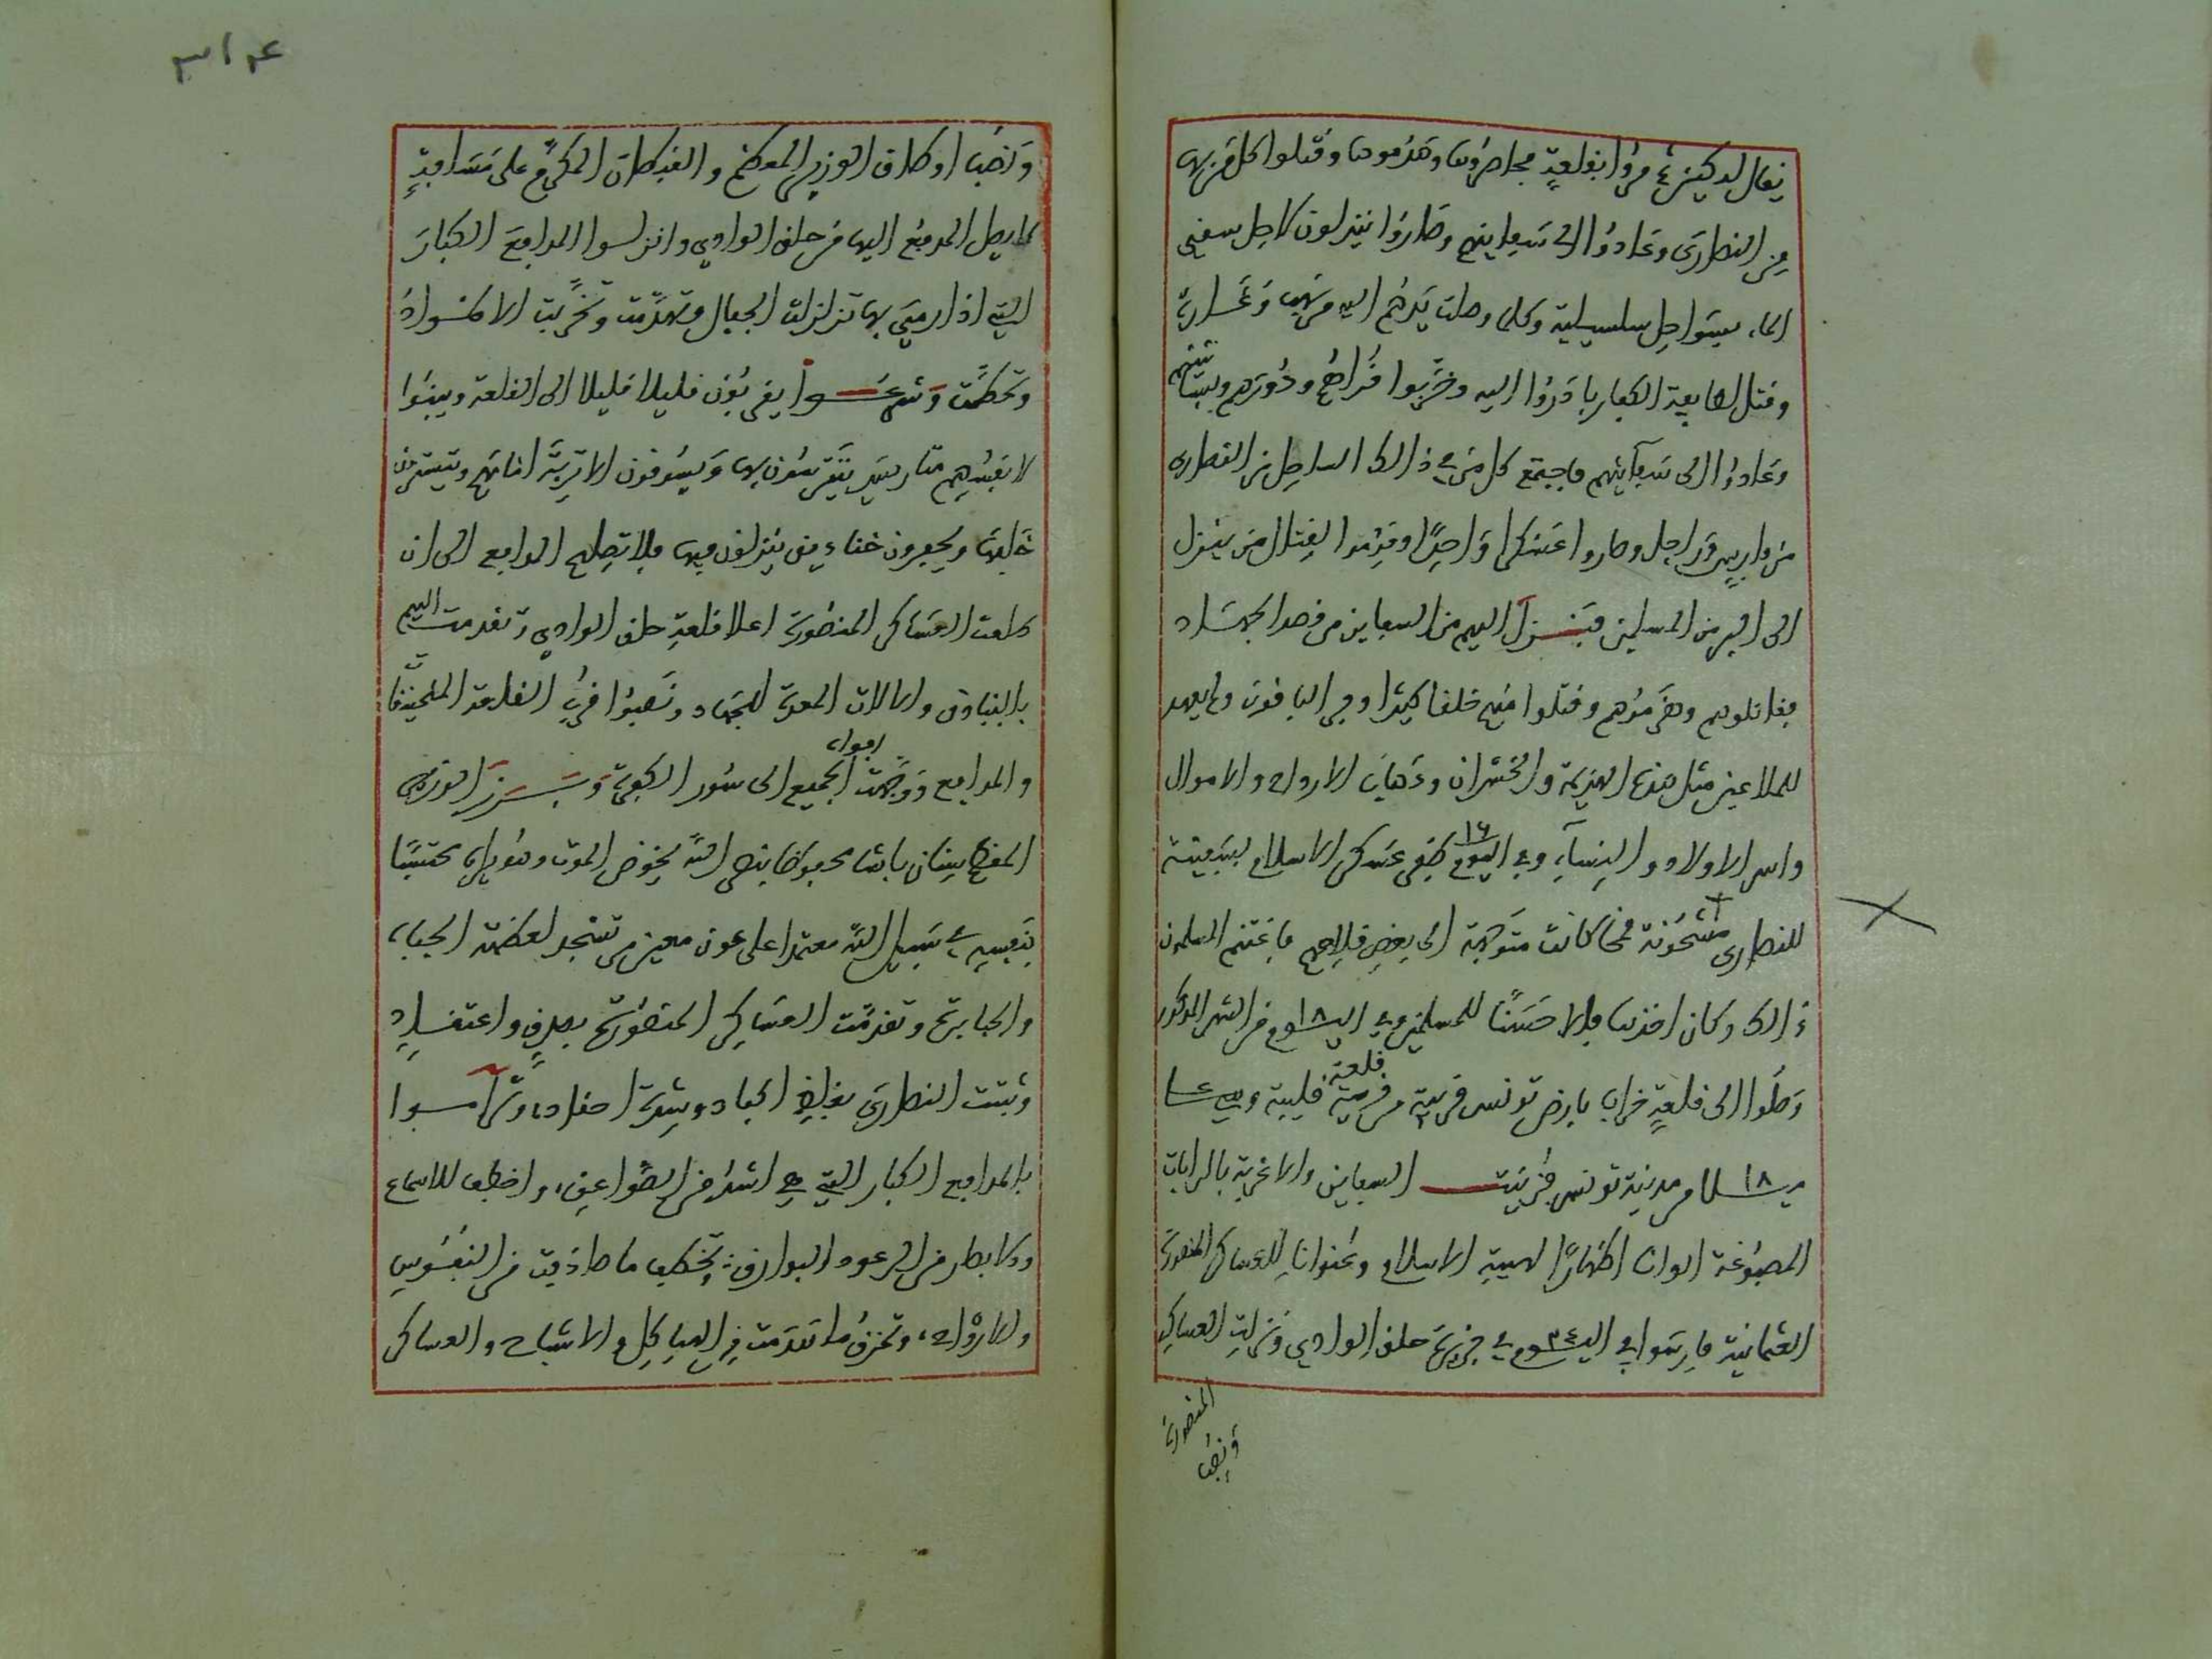 يقال له كيزع مروا بقلعة فحاصروها وهدموها وقتلوا كل من بها
من النصارى وعادوا الى سفاينهم وصاروا ينزلون كاجل سفي
الماء بسواحل سلسيلية وكلما وصلت يدهم اليه من نهب وغارة
وقتل لطايفة الكفار بادروا اليه وخربوا قراهم ودورهم وبساتينهم
وعادوا الى سفاينهم فاجتمع كل من في ذالك الساحل من النصارى
من فارس وراجل وصاروا عسكرا واحدا وقدموا لقتال من ينزل
الى البر من المسلمين فنزل اليهم من السفاين من قصد الجهاد
فقاتلوهم وهزموهم وقتلوا منهم خلقا كثيرا وفر الباقون ولم يعهد
للملاعين مثل هذه الهزيمة والخسران وذهاب الارواح والاموال
واسر الاولاد والنساء وفي اليوم ١٦ ظفر عسكر الاسلام بسفينة
للنصارى مشحونة قمحا كانت متوجهة الى بعض قلاعهم فاغتنم المسلمون
ذالك وكان اخذها فالا حسنا للمسلمين وفي اليوم ١٨ من الشهر المذكور
وصلوا الى قلعة خراب بارض تونس قريبة من قلعة قليبية وهي عـــا
١٨ مـيـــلا من مدينة تونس فزينت السفاين والاغربة بالرايات
المصبوغة الوانا اظهارا لهيبة الاسلام وعنوانا للعساكر المنصورة
العثمانية فارسوا في اليوم ٢٤ في جزيرة حلق الوادي ونزلت العساكر
المنصورة
ونصبا
٣١٤
ونصبا اوطاق الوزير المعظم والقبطان المكرم على مسافة
لا يصل المدفع اليها من حلق الوادي وانزلوا المدافع الكبار
التي اذا رمي بها تزلزلت الجبال وتهدمت وتخربت الاطواد
وتحطمت وشرعـــوا يقربون قليلا قليلا الى القلعة ويبنوا
لانفسهم متاريس يتترسون بها ويسوقون الاتربة امامهم ويتسترون
خلفها ويحفرون خنادق ينزلون فيها فلا تصلهم المدافع الى ان
طلعت العساكر المنصورة اعلا قلعة حلق الوادي وتقدمت اليهم
بالبنادق والالات المعدة للجهاد ونصبوا قرب القلعة المنجنيقات
والمدافع ووجهت افواه الجميع الى سور الكفرة وبـــرز الوزير
المفخم سنان باشا محفوظا بنصر الله يخوض الموت وهو يراه محتسبا
بنفسه في سبيل الله معتمدا على عون معين من تسجد لعظمته الجباه
والجبابرة وتقدمت العساكر المنصورة بصدق واعتقاد
وثبتت النصارى بغليظ اكباد وشدة احقاد، وترامـــوا
بالمدافع الكبار التي هي اشد من الصواعق، واخطف للاسماع
والابصار من الرعود البوارق، وتخطف ما صادفت من النفوس
والارواح، وتحزق ما صدمت من الهياكل والاشباح والعساكر